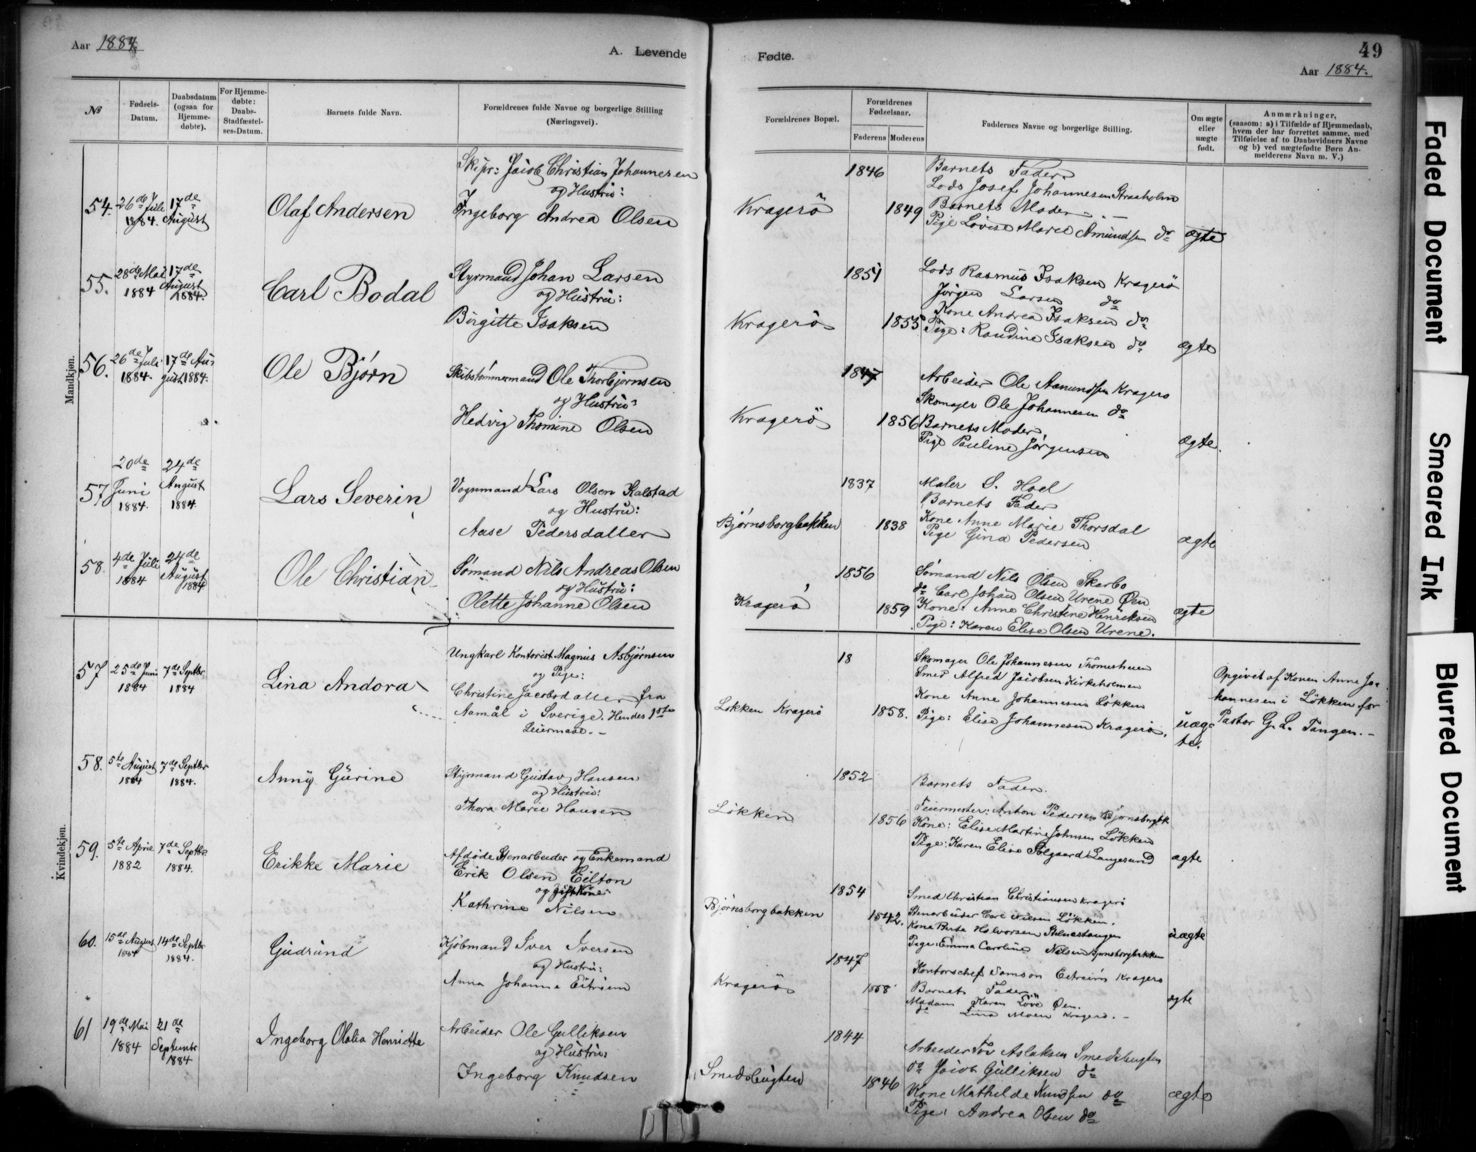 Aar 1884
A. Levende Fødte.
49
Aar 1884.
№
Fødsels-Datum.
Daabsdatum (ogsaa for Hjemmedøbte).
For Hjemmedøbte: Daabs-Stadfæstelses-Datum.
Barnets fulde Navn.
Forældrenes fulde Navne og borgerlige Stilling (Næringsvei).
Forældrenes Bopæl.
Forældrenes Fødselsaar.
Faderens Moderens
Faddernes Navne og borgerlige Stilling.
Om ægte eller uægte født.
Anmærkninger,
(saasom: a) i Tilfælde af Hjemmedaab, hvem der har forrettet samme, med Tilføielse af to Daabsvidners Navne og b) ved uægtefødte Børn Anmelderens Navn m. V.)
Mandkjøn.
54. 26de Juli 1884. 17de August
Olaf Andersen
Skipr: Jacob Christian Johannesen
og Hustru:
Ingeborg Andrea Olsen
Kragerö
1846
1849
Barnets Fader
Lods Josef Johannesen Straaholm
Barnets Moder
Pige Lovise Marie Amundsen do
ægte
55. 28de Mai 1884 17de August 1884.
Carl Bodal
Styrmand Johan Larsen
og Hustru:
Birgitte Isaksen
Kragerö
1851
1855
Lods Rasmus Isaksen Kragerö
Jörgen Larsen do
Kone Andrea Isaksen do
Pige: Randine Isaksen do
ægte
56. 26de Juli 1884. 17de August 1884.
Ole Bjørn
Skibstømmermand Ole Thorbjørnsen
og Hustru:
Hedvig Thomine Olsen
Kragerö
1847
1856
Arbeider Ole Aamundsen Kragerø
Skomager Ole Johannesen do
Barnets Moder
Pige Pauline Jørgensen
ægte.
57 20de Juni 1884. 24de August 1884.
Lars Severin
Vognmand Lars Olsen Kalstad
og Hustru:
Aase Pedersdatter
Bjørnsborgbakken
1837
1838
Maler S. Hoel
Barnets Fader
Kone Anne Marie Thorsdal
Pige Gina Pedersen
ægte
58. 4de Juli 1884 24de August 1884
Ole Christian
Sømand Nils Andreas Olsen
og Hustru:
Olette Johanne Olsen
Kragerø
1856
1859
Sømand Nils Olsen Skarbo
do Carl Johan Olsen Urene Øen
Kone: Anne Christine Henriksen
Pige: Karen Elise Olsen Urene.
ægte
Kvindekjøn.
57 25de Juni 1884 7de Septbr 1884
Lina Andora
Ungkarl Kontorist Magnus Asbjørnsen
og Pige:
Christine Jacobsdatter fra
Aamål i Sverige. Hendes 1ste
Leiermaal. -
Løkken Kragerö
18
1858.
Skomager Ole Johannesen
Smed Alfred Jacobsen Kirkeholmen
Kone Anne Johannesen Løkken
Pige: Elise Johannesen Kragerø.
uægte.
Opgivet af Konen Anne Johannesen i Løkken for
Pastor G. L. Tangen. -
58. 5te August 1884 7de Septbr 1884.
Anny Gürine
Styrmand Gustav Hansen
og Hustru:
Thora Marie Hansen
Løkken
1852
1856
Barnets Fader.
Feiermester: Anton Pedersen Bjønsborgbk
Kone: Elise Martine Johnsen Løkken
Pige: Karen Elise Solgaard Langesund
ægte
59. 5te April 1882 7de Septbr 1884.
Erikke Marie
Afdøde Stenarbeider og Enkemand
Erik Olsen Eilton
og gift Kone
Kathrine Nilsen
Bjørnsborgbakken
1854
1842.
Smed Christian Christiansen Kragerø
Stenarbeider Carl Nilsen Løkken.
Kone Berta Halvorsen
Pige: Emma Caroline Nilsen Bjønsborgbakken
uægte
60. 15de August 1884 14de Septbr 1884.
Gudrund
Kjøbmand Iver Iversen
og Hustru:
Anna Johanna Eitrem
Kragerö
1847
1858
Kontorchef Samson Eitreim Kragerø
Barnets Fader
Madam Karen Löve Øen.
do Lina Moen Kragerø. -
ægte
61 19de Mai 1884 21de Septembr 1884
Ingeborg Olalia Henriette
Arbeider Ole Gulliksen
og Hustru
Ingeborg Knudsen
Smedsbugten
1844
1846
Arbeider Tov Aslaksen Smedsbugten
do Jacob Gulliksen do
Kone Mathilde Knudsen do
Pige: Andrea Olsen do
ægte
Faded Document
Smeared Ink
Blurred Document